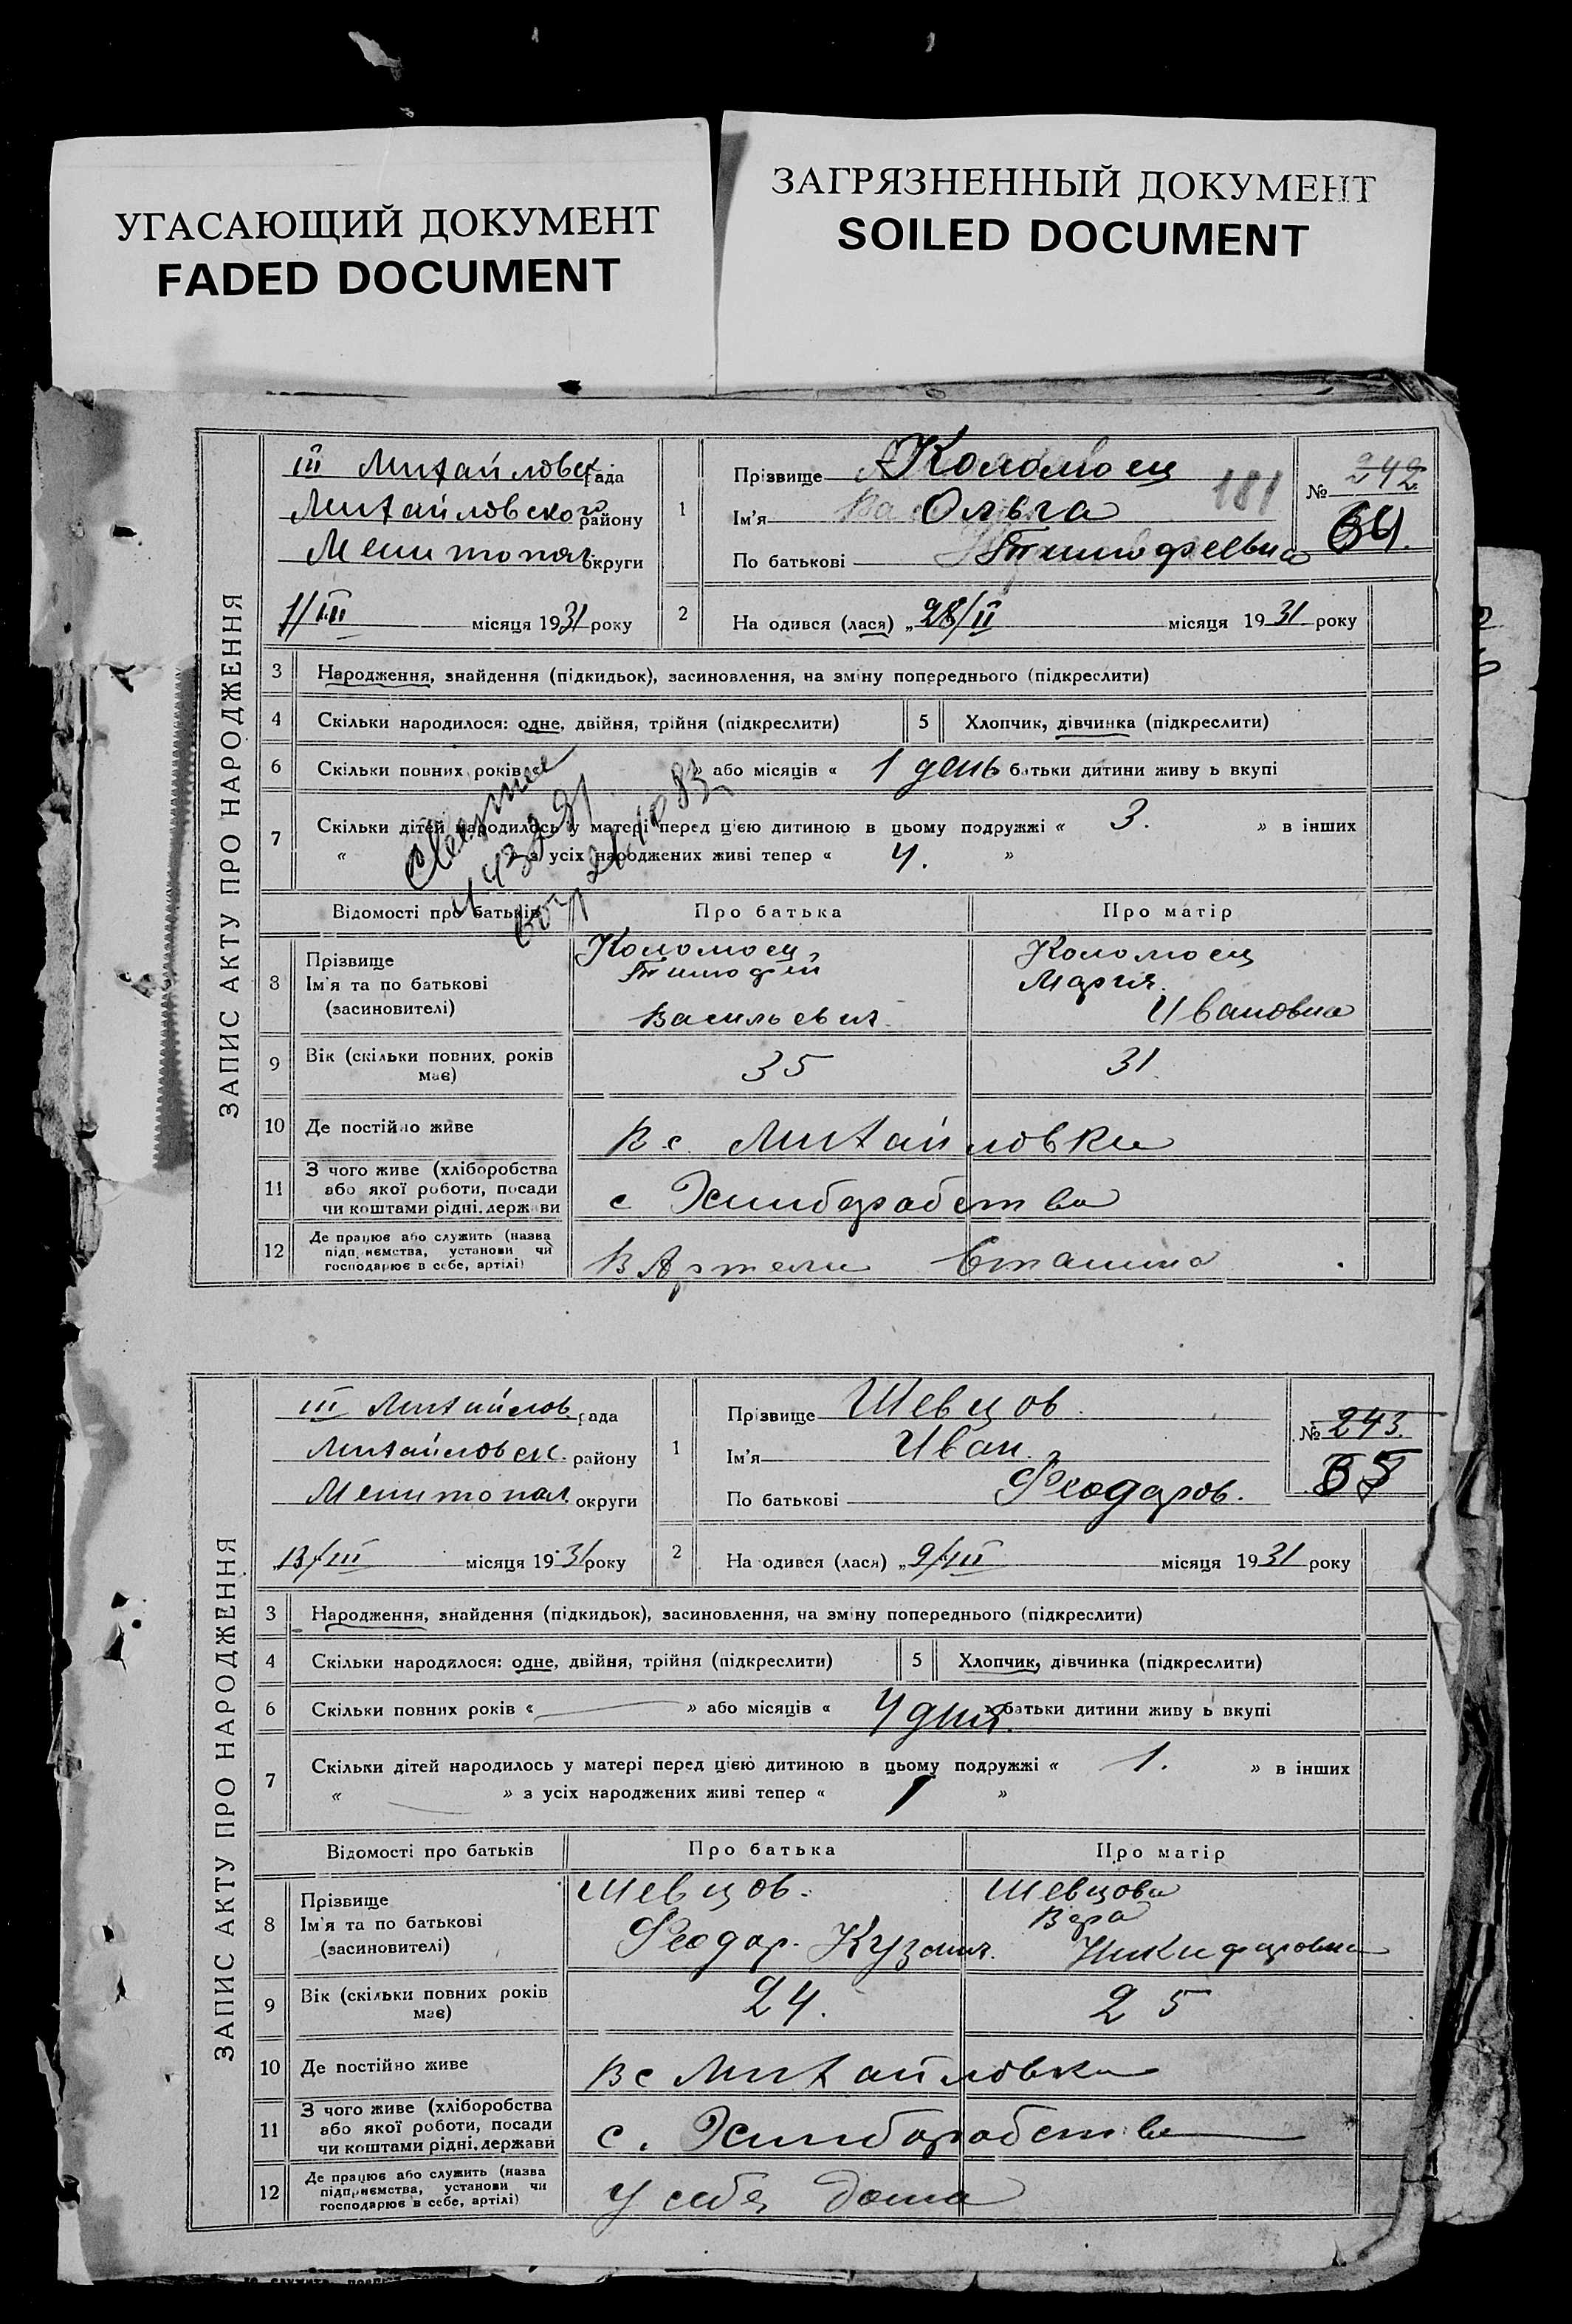 УГАСАЮЩИЙ ДОКУМЕНТ
FADED DOCUMENT
ЗАГРЯЗНЕННЫЙ ДОКУМЕНТ
SOILED DOCUMENT
ЗАПИС АКТУ ПРО НАРОДЖЕННЯ
III Михайловск рада
Михайловской району
Мелитопол округи
1/III місяця 1931 року
1 Прізвище Коломоец
181
Ім'я Ольга
По батькові Тимофеевна
№ 242
64.
2 На одився (лася) „28/II місяця 1931 року
3 Народження, знайдення (підкидьок), засиновлення, на зміну попереднього (підкреслити)
4 Скільки народилося: одне, двійня, трійня (підкреслити)
5 Хлопчик, дівчинка (підкреслити)
6 Скільки повних років « » або місяців « 1 день батьки дитини живу ь вкупі
7 Скільки дітей народилось у матері перед цією дитиною в цьому подружжі « 3. » в інших
« » з усіх народжених живі тепер « 4. »
Відомості про батьків
Про батька
Про матір
8 Прізвище
Ім'я та по батькові
(засиновителі)
Коломоец
Тимофей
Васильевич
Коломоец
Мария
Ивановна
9 Вік (скільки повних років має)
35
31
10 Де постійно живе
В с. Михайловки
11 З чого живе (хліборобства
або якої роботи, посади
чи коштами рідні, держави
с Хлиборабства
12 Де працює або служить (назва
підприємства, установи чи
господарює в себе, артілі)
В Артели Сталина
ЗАПИС АКТУ ПРО НАРОДЖЕННЯ
III Михайлов рада
Михайловск. району
Мелитопол округи
13/III місяця 1931 року
1 Прізвище Шевцов.
Ім'я Иван
По батькові Феодоров.
№ 243.
65
2 На одився (лася) „9/III місяця 1931 року
3 Народження, знайдення (підкидьок), засиновлення, на зміну попереднього (підкреслити)
4 Скільки народилося: одне, двійня, трійня (підкреслити)
5 Хлопчик, дівчинка (підкреслити)
6 Скільки повних років « — » або місяців « 4 дня. батьки дитини живу ь вкупі
7 Скільки дітей народилось у матері перед цією дитиною в цьому подружжі « 1. » в інших
« » з усіх народжених живі тепер « 1 »
Відомості про батьків
Про батька
Про матір
8 Прізвище
Ім'я та по батькові
(засиновителі)
Шевцов.
Феодор. Кузмич.
Шевцова
Вера
Никифоровна
9 Вік (скільки повних років має)
24.
25
10 Де постійно живе
В с Михайловки
11 З чого живе (хліборобства
або якої роботи, посади
чи коштами рідні, держави
с. Хлиборабства
12 Де працює або служить (назва
підприємства, установи чи
господарює в себе, артілі)
У себя дома